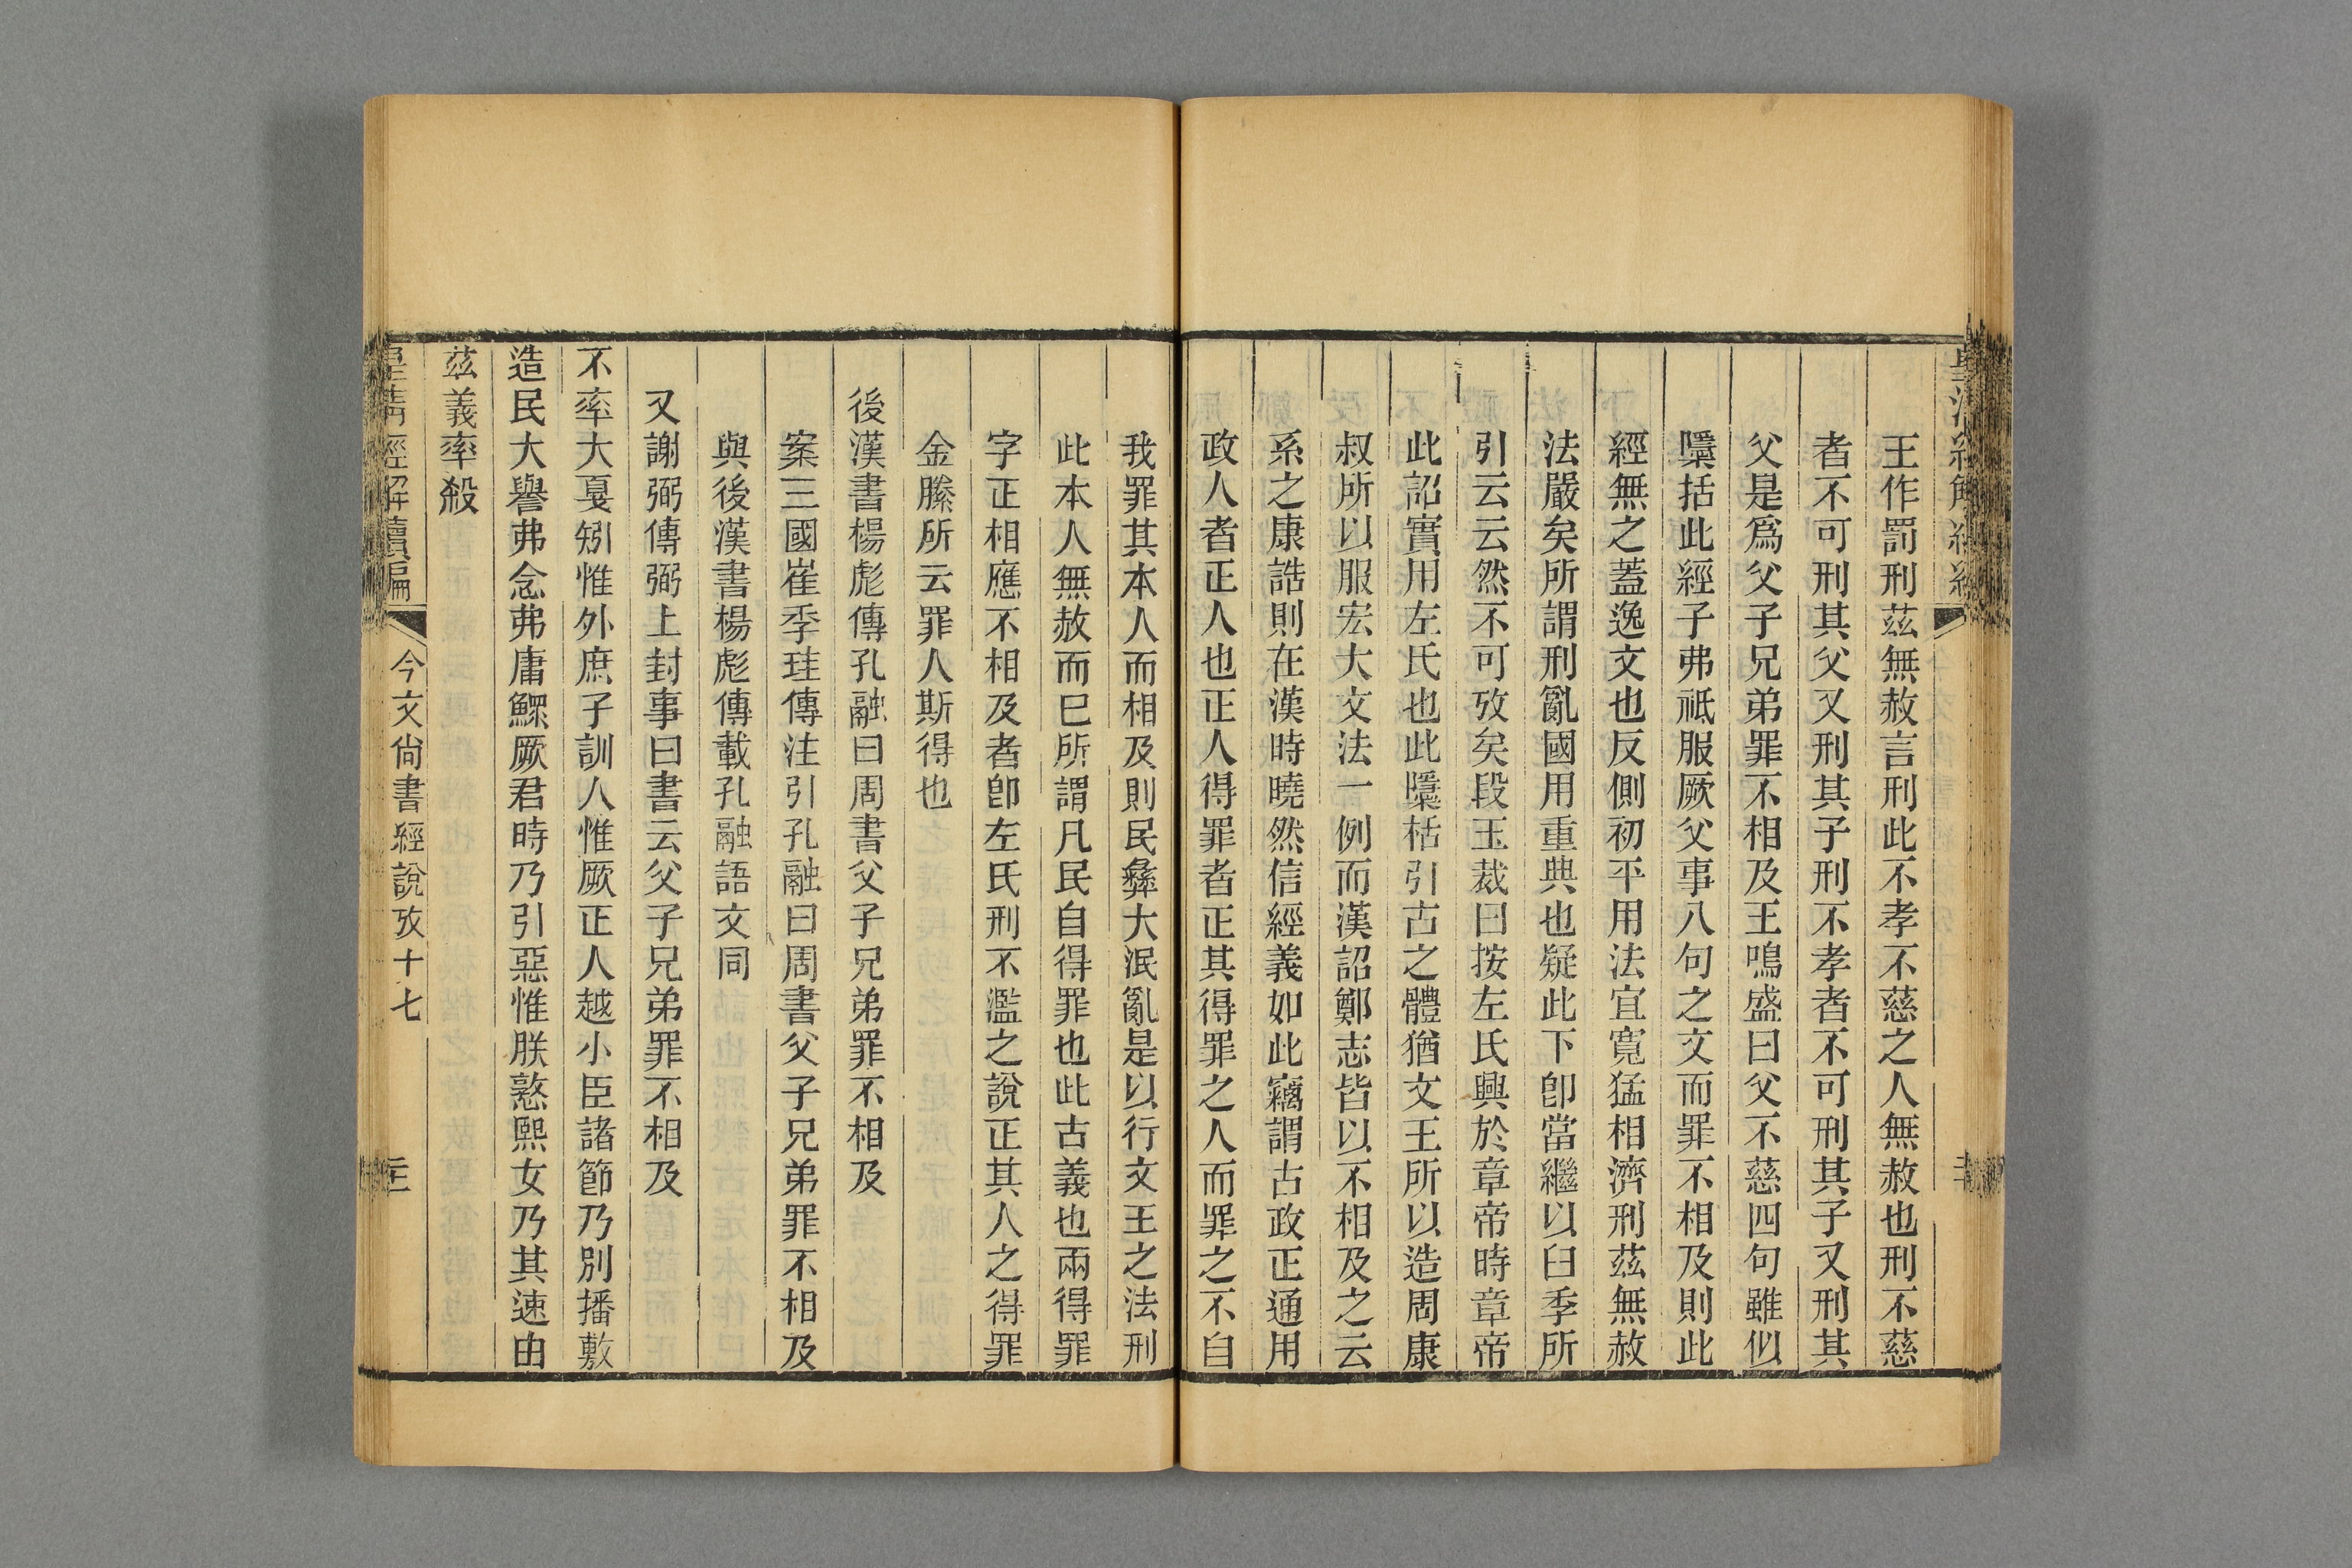 王作罰刑茲無赦言刑此不孝不慈之人無赦也刑不慈
者不可刑其父又刑其子刑不孝者不可刑其子又刑其
父是爲父子兄弟罪不相及王鳴盛曰父不慈四句雖似
隱括此經子弗祗服厥父事八句之文而罪不相及則此
經無之蓋逸文也反側初平用法宜寬猛相濟刑茲無赦
法嚴矣所謂刑亂國用重典也疑此下卽當繼以臼季所
引云云然不可攷矣段玉裁曰按左氏興於章帝時章帝
此詔實用左氏也此檃栝引古之體猶文王所以造周康
叔所以服宏大文法一例而漢詔鄭志皆以不相及之云
系之康誥則在漢時曉然信經義如此竊謂古政正通用
政人者正人也正人得罪者正其得罪之人而罪之不自
我罪其本人而相及則民彝大泯亂是以行文王之法刑
此本人無赦而巳所謂凡民自得罪也此古義也兩得罪
字正相應不相及者卽左氏刑不濫之說正其人之得罪
金縢所云罪人斯得也
後漢書楊彪傳孔融曰周書父子兄弟罪不相及
案三國崔季珪傳注引孔融曰周書父子兄弟罪不相及
與後漢書楊彪傳載孔融語文同
又謝弼傳弼上封事曰書云父子兄弟罪不相及
不率大戛矧惟外庶子訓人惟厥正人越小臣諸節乃別播敷
造民大譽弗念弗庸鰥厥君時乃引惡惟朕憝熙女乃其速由
茲義率殺
皇清經解續編
今文尙書經說攷十七